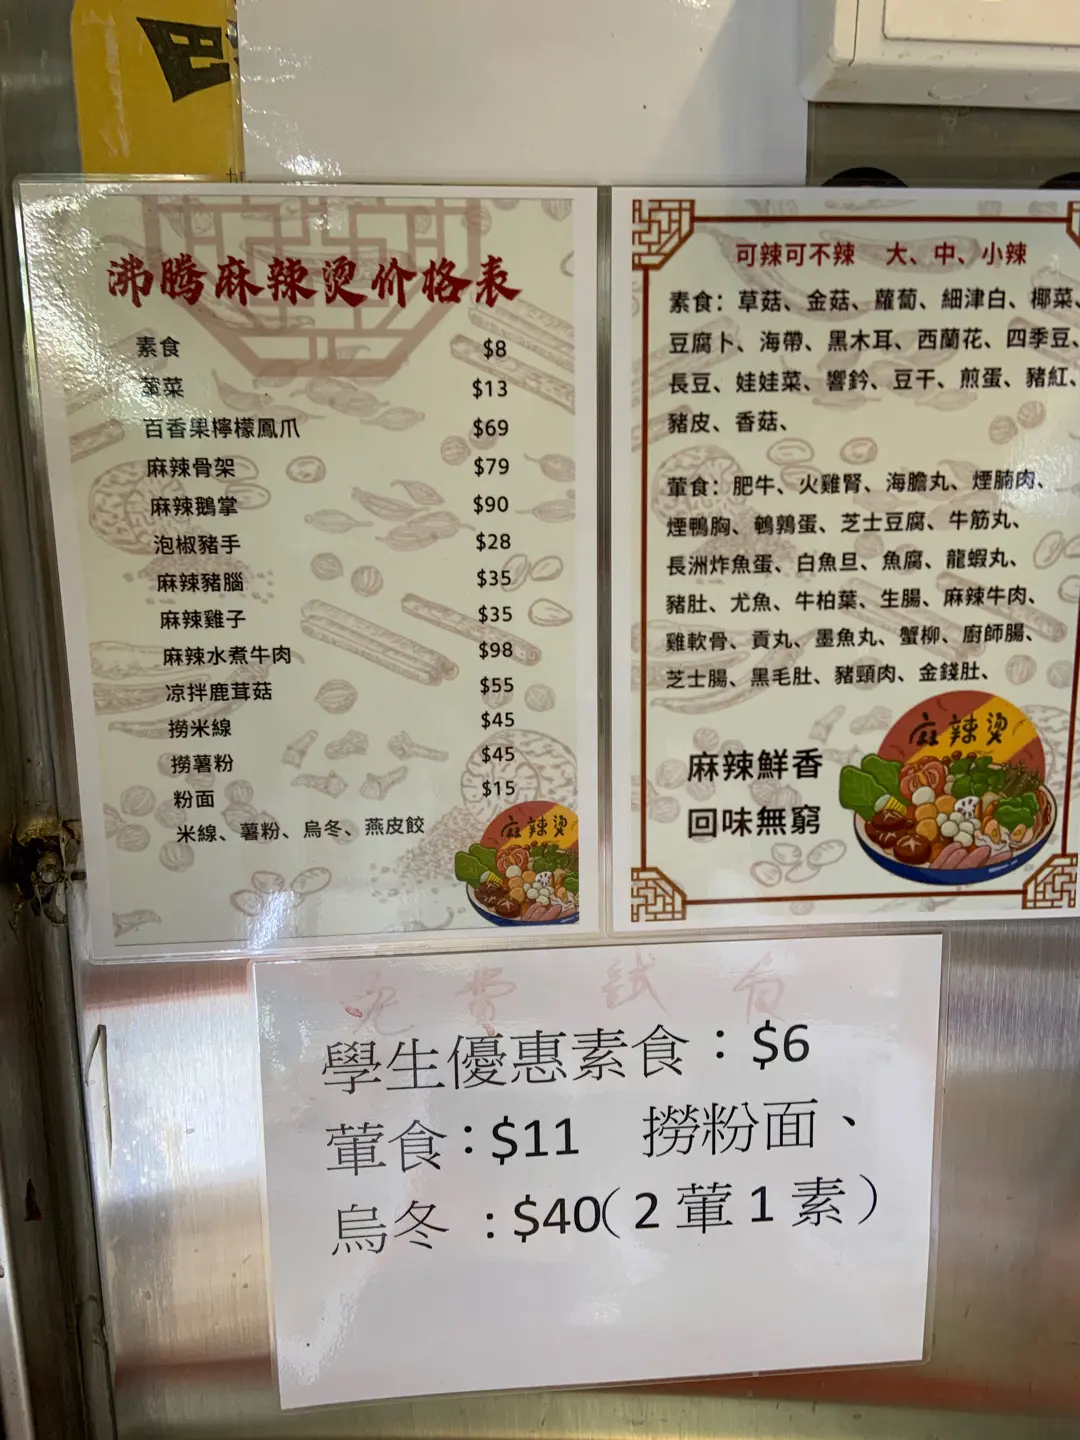 沸腾麻辣烫价格表
素食 $8
葷菜 $13
百香果檸檬鳳爪 $69
麻辣骨架 $79
麻辣鵝掌 $90
泡椒豬手 $28
麻辣豬腦 $35
麻辣雞子 $35
麻辣水煮牛肉 $98
凉拌鹿茸菇 $55
撈米線 $45
撈薯粉 $45
粉面 $15
米線、薯粉、烏冬、燕皮餃
麻辣烫
可辣可不辣 大、中、小辣
素食：草菇、金菇、蘿蔔、細津白、椰菜、
豆腐卜、海帶、黑木耳、西蘭花、四季豆、
長豆、娃娃菜、響鈴、豆干、煎蛋、豬紅、
豬皮、香菇、
葷食：肥牛、火雞腎、海膽丸、煙腩肉、
煙鴨胸、鵪鶉蛋、芝士豆腐、牛筋丸、
長洲炸魚蛋、白魚旦、魚腐、龍蝦丸、
豬肚、尤魚、牛柏葉、生腸、麻辣牛肉、
雞軟骨、貢丸、墨魚丸、蟹柳、廚師腸、
芝士腸、黑毛肚、豬頸肉、金錢肚、
麻辣鮮香
回味無窮
麻辣烫
免費試食
學生優惠素食：$6
葷食：$11 撈粉面、
烏冬：$40（2葷1素）